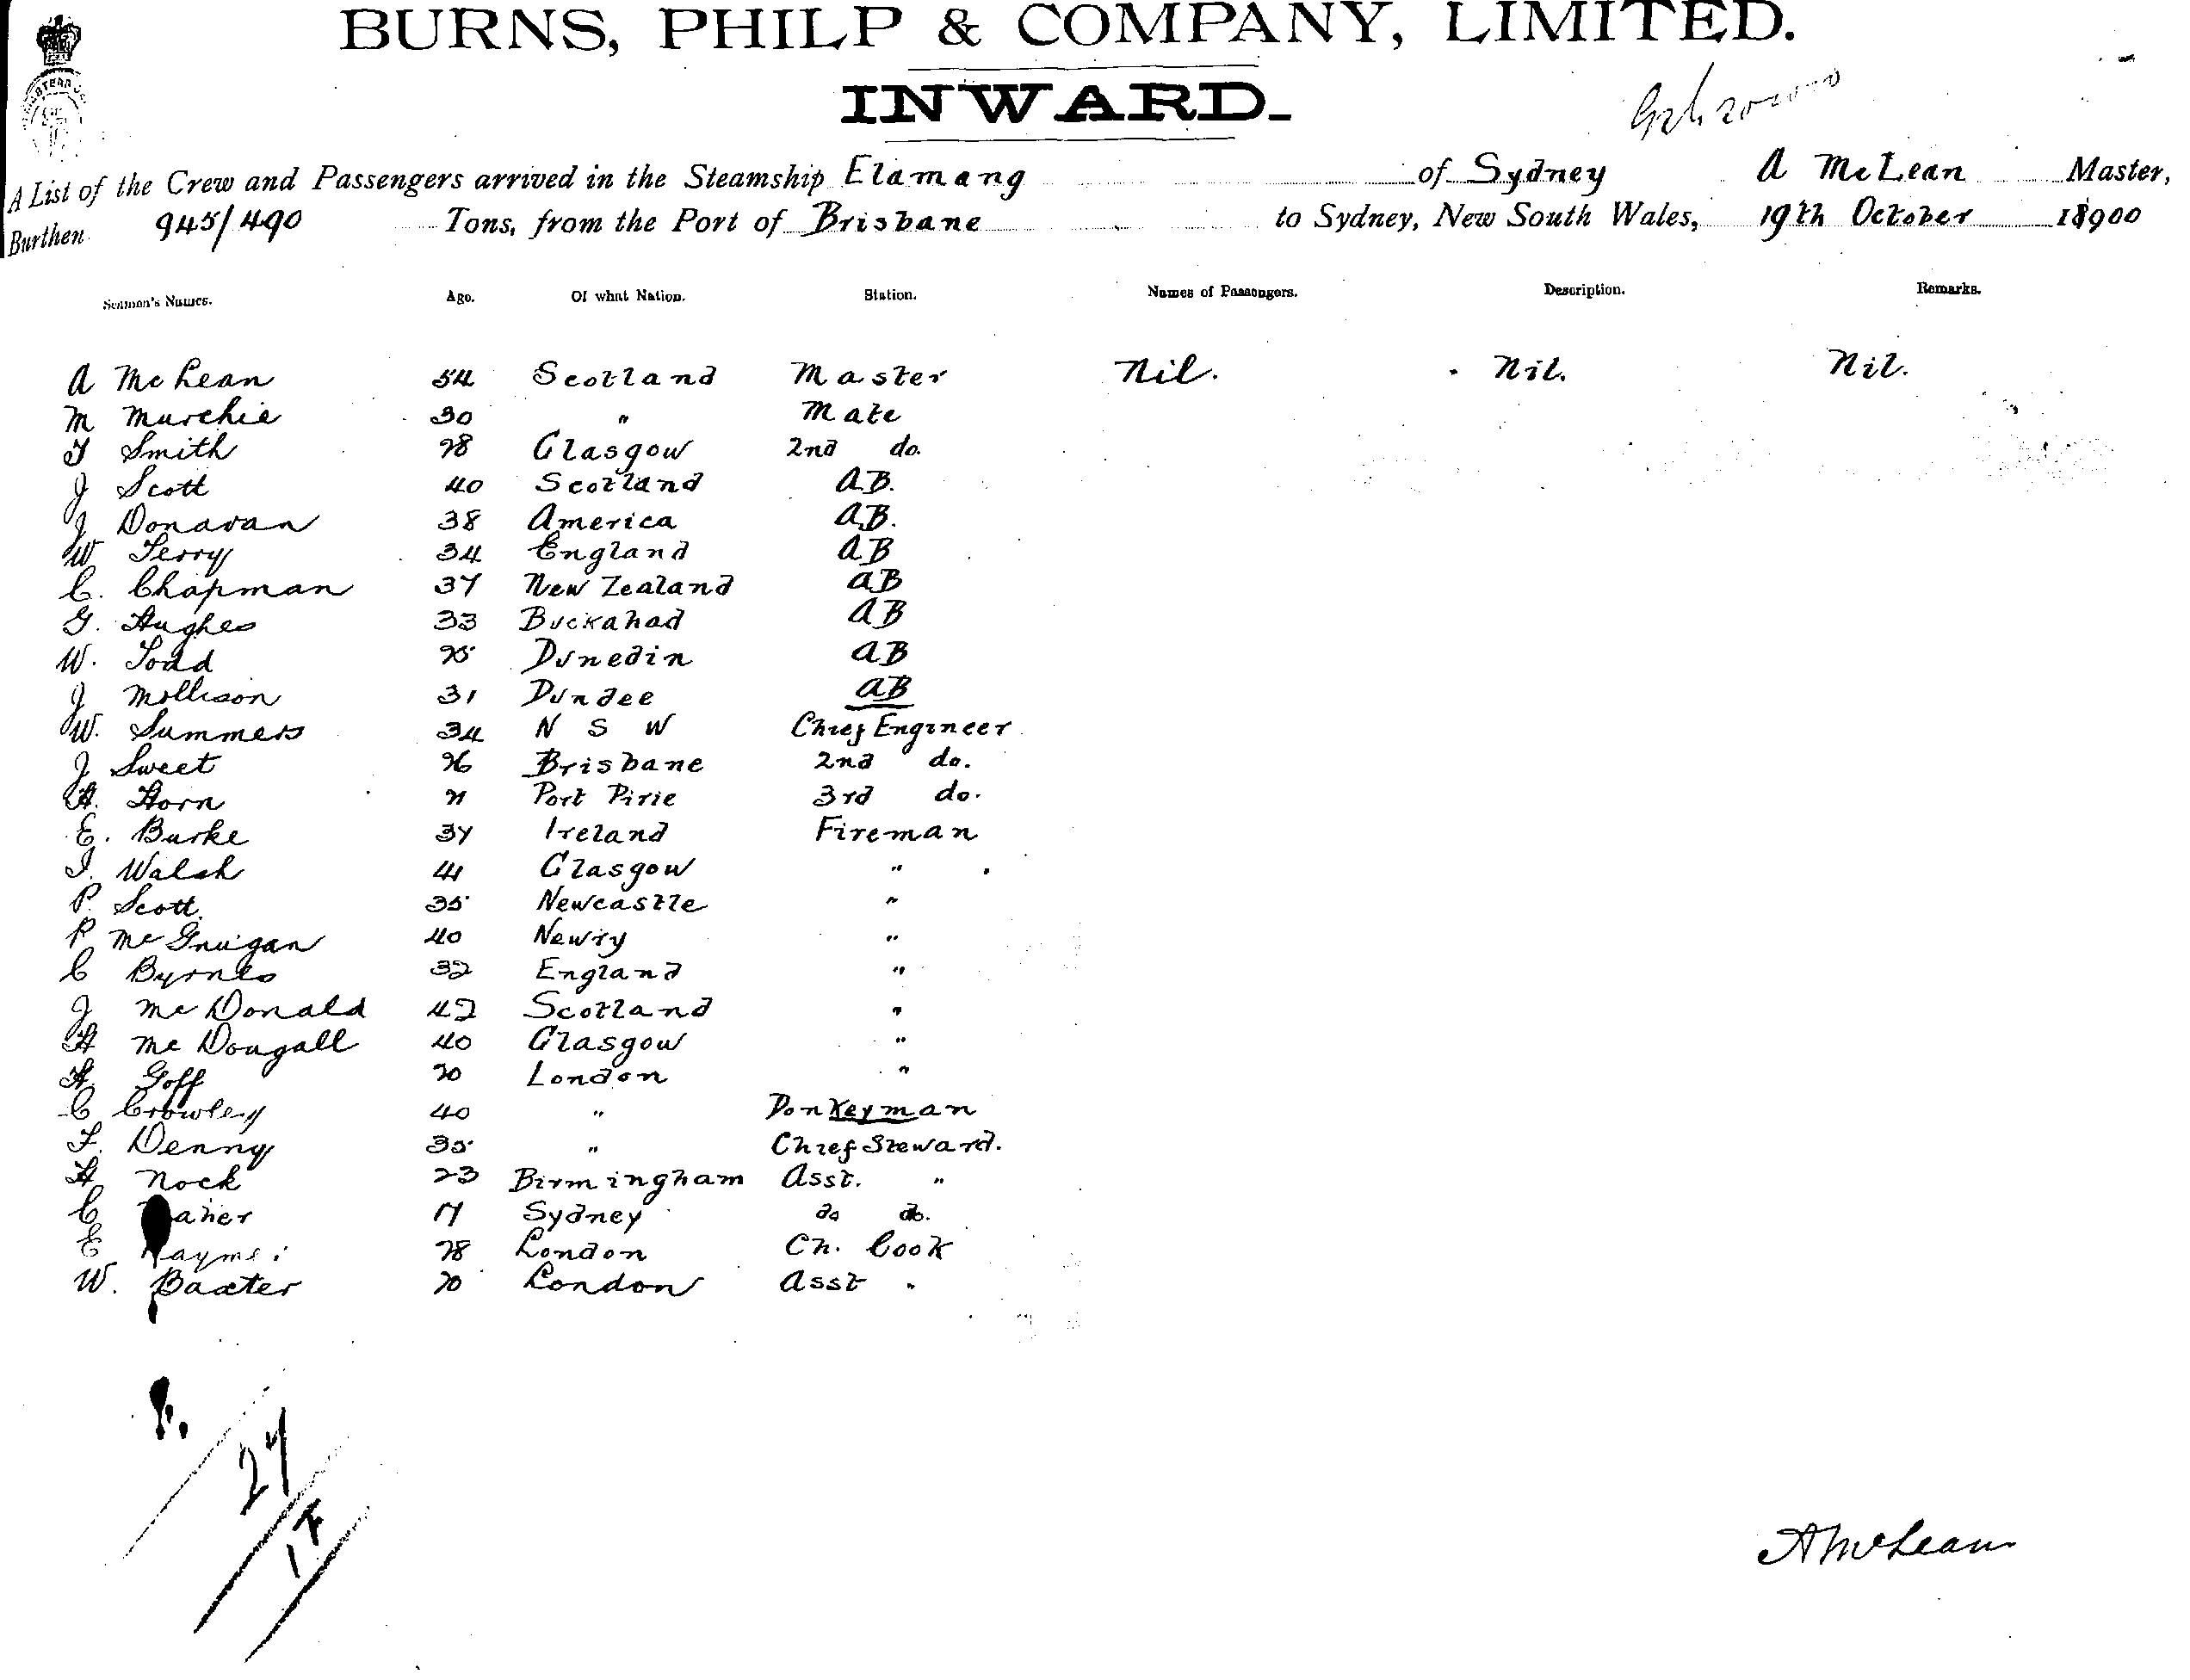 BURNS, PHILP & COMPANY, LIMITED.
INWARD.
A List of the Crew and Passengers arrived in the Steamship Elamang of Sydney A McLean Master,
Burthen 945/490 Tons, from the Port of Brisbane to Sydney, New South Wales, 19th October 1900
Seaman's Names. Age. Of what Nation. Station. Names of Passengers. Description. Remarks.
A McLean 54 Scotland Master Nil. Nil. Nil.
M Murchie 30 " Mate
T Smith 28 Glasgow 2nd do.
J Scott 40 Scotland A.B.
J Donavan 38 America A.B.
W Terry 34 England A.B
C. Chapman 37 New Zealand AB
G. Hughes 33 Buckahad AB
W. Todd 25 Dunedin AB
J Mollison 31 Dundee AB
W. Summers 34 N S W Chief Engineer
J Sweet 26 Brisbane 2nd do.
H. Horn 21 Port Pirie 3rd do.
E. Burke 37 Ireland Fireman
J. Walsh 41 Glasgow "
P. Scott. 35 Newcastle "
P McGuigan 40 Newry "
C Byrnes 32 England "
J McDonald 42 Scotland "
H McDougall 40 Glasgow "
H. Goff 20 London "
C Crowley 40 " Donkeyman
F. Denny 35 " Chief Steward.
H Nock 23 Birmingham Asst. "
C 17 Sydney do do.
E 28 London Ch. Cook
W. Baxter 20 London Asst "
27
A McLean